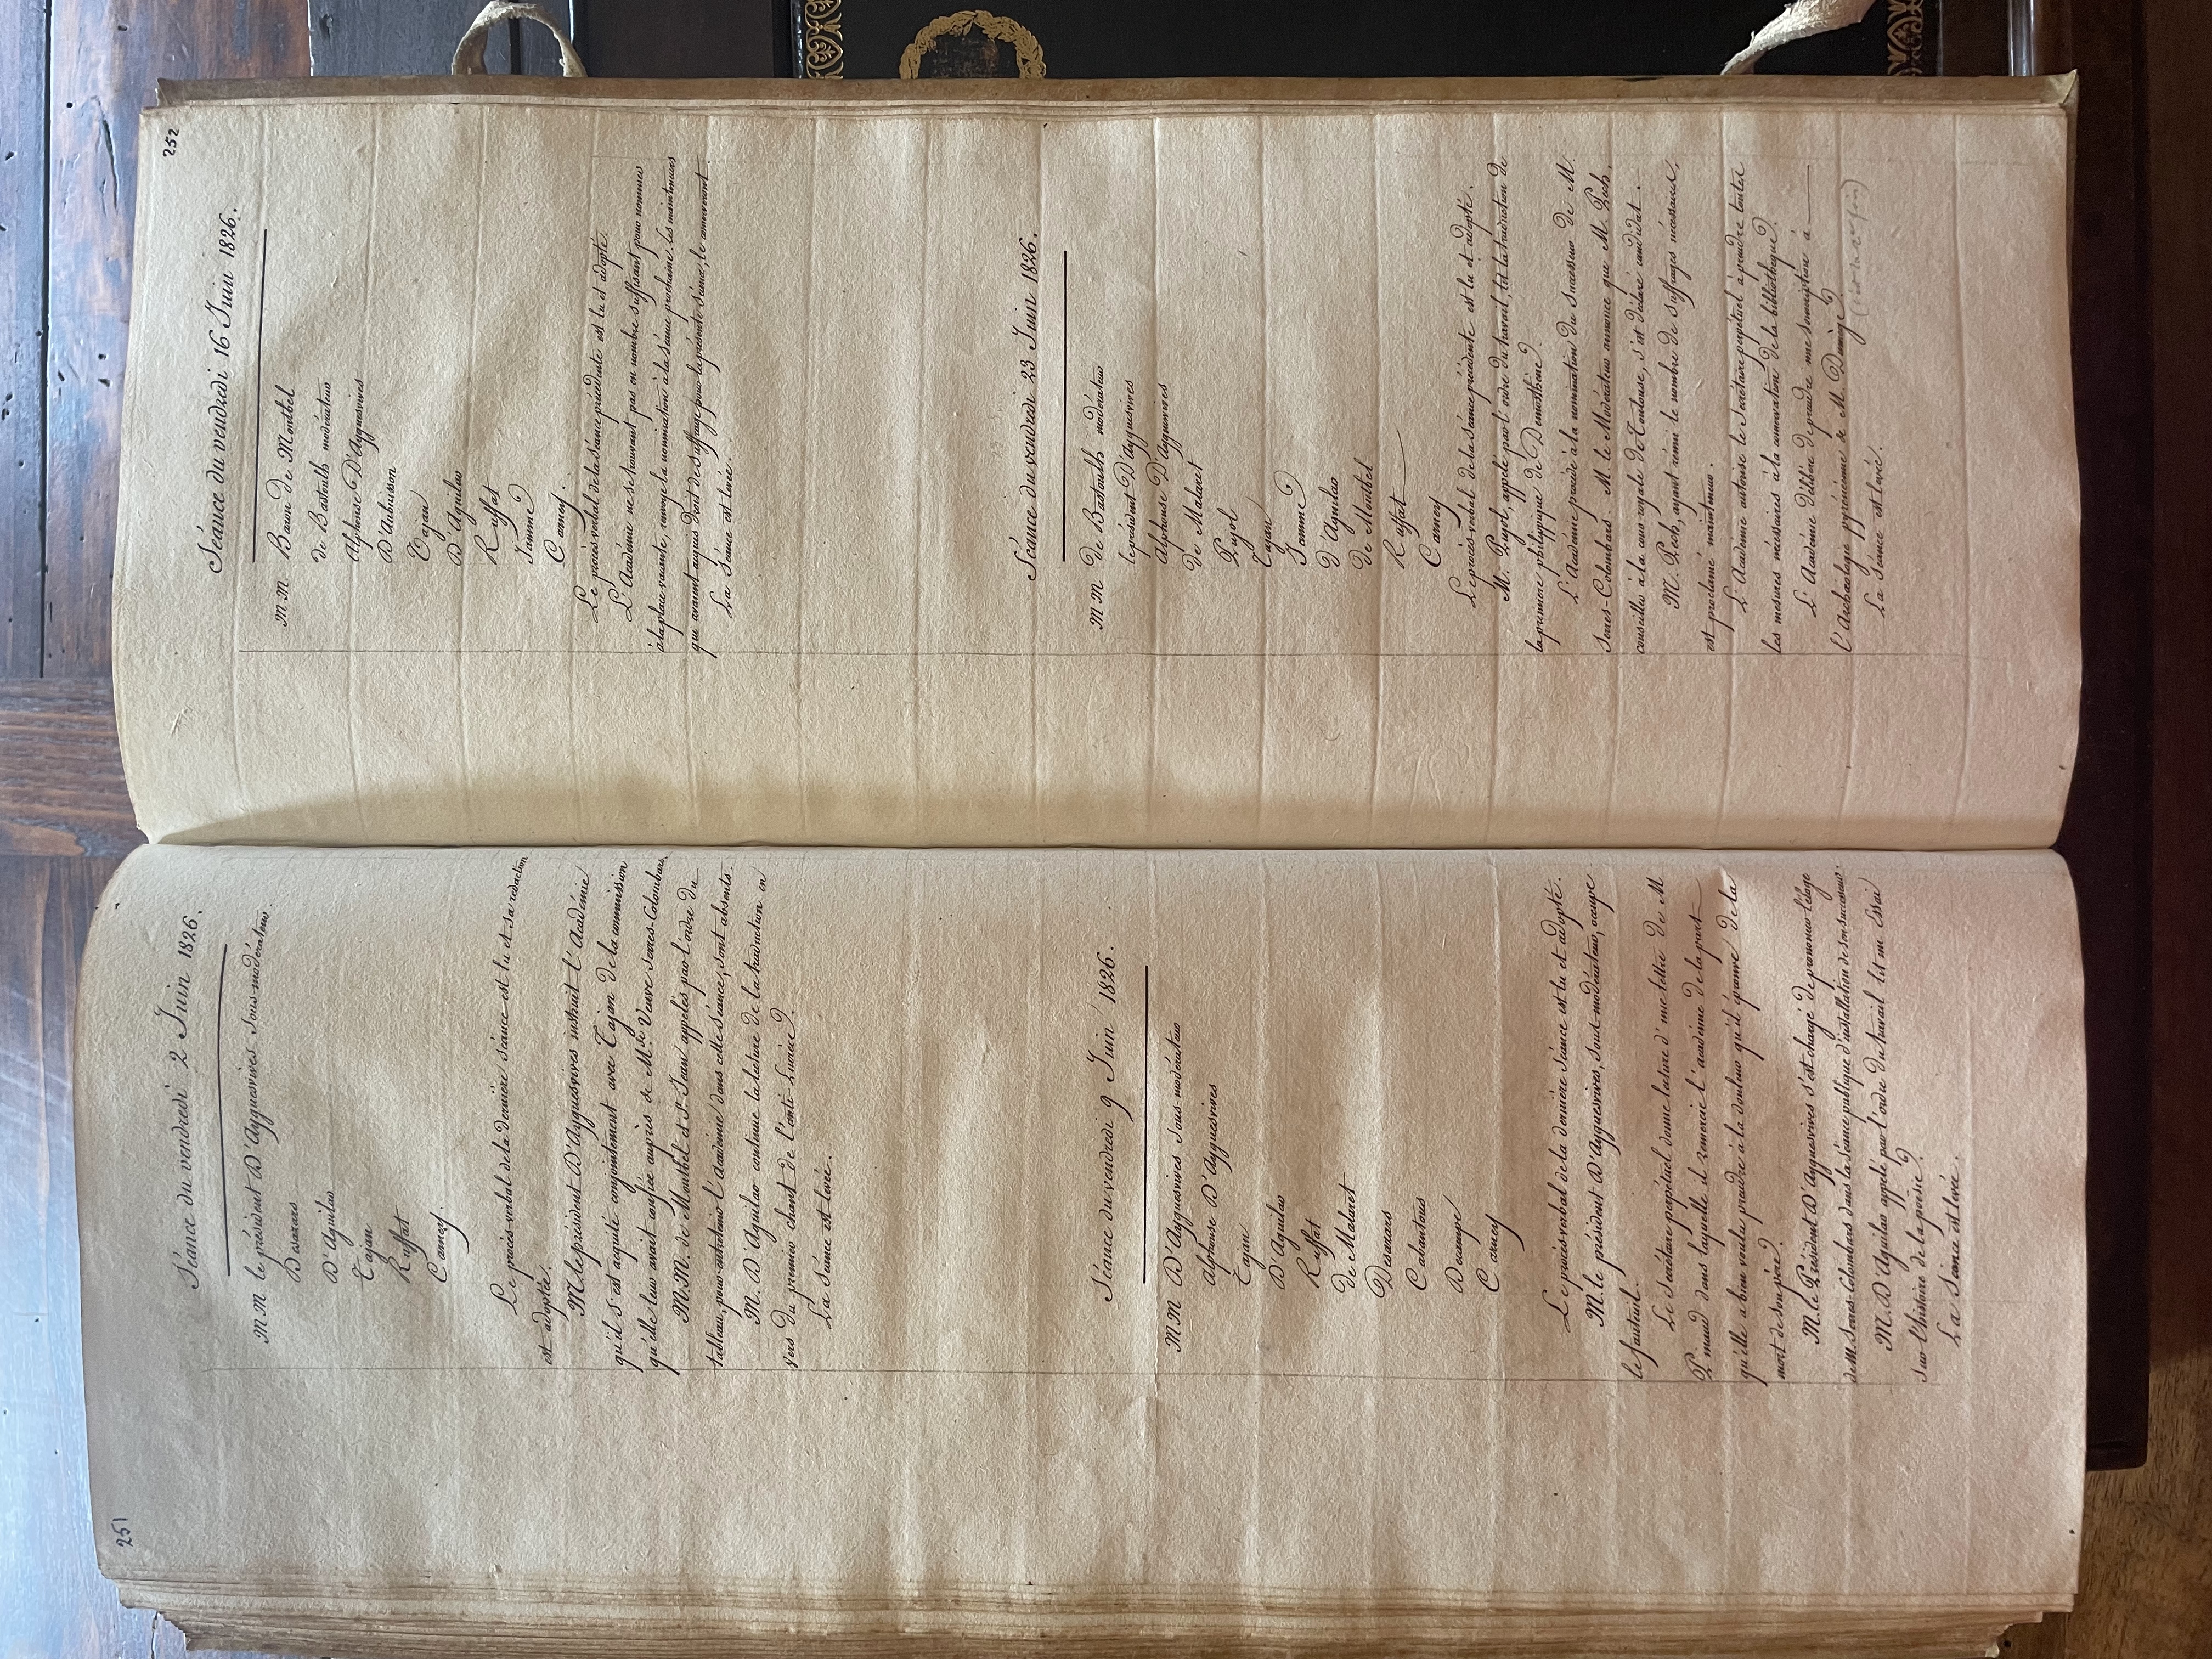 251
Séance du vendredi 2 Juin 1826.
MM le président D'Ayguesvives sous-modérateur.
Desazars
D'Aguilar
Tajan
Ruffat
Carney.
Le procès-verbal de la dernière séance est lu et sa rédaction
est adoptée.
M. le président D'Ayguesvives instruit l'Académie
qu'il s'est acquitté conjointement avec Tajan de la commission
qu'elle leur avait confiée auprès de Mde Veuve Serres-Colombars.
M.M. de Montbel et St Jean appelés par l'ordre du
tableau, pour entretenir l'Académie dans cette séance, sont absents.
M. D'Aguilar continue la lecture de la traduction en
vers du premier chant de l'anti-Lucrèce.
La séance est levée.
Séance du vendredi 9 Juin 1826.
MM D'Ayguesvives sous-modérateur
Alphonse D'Ayguesvives
Tajan
D'Aguilar
Ruffat
de Malaret
Desazars
Cabantous
Decampe
Carney
Le procès-verbal de la dernière séance est lu et adopté.
M. le président D'Ayguesvives, sous-modérateur, occupe
le fauteuil.
Le Secrétaire perpétuel donne lecture d'une lettre de M
Pinaud dans laquelle il remercie l'académie de la part
qu'elle a bien voulu prendre à la douleur qu'il éprouve de la
mort de son père.
M. le Président D'Ayguesvives s'est chargé de prononcer l'éloge
de M. Serres-Colombars dans la séance publique d'installation de son successeur.
M. D'Aguilar appelé par l'ordre du travail lit un Essai
sur l'histoire de la poésie.
La Séance est levée.
252
Séance du vendredi 16 Juin 1826.
MM Baron de Montbel
de Bastoulh modérateur
Alphonse D'Ayguesvives
D'Aubuisson
Tajan
D'Aguilar
Ruffat
Jamme
Carney.
Le procès-verbal de la séance précédente est lu et adopté.
L'Académie ne se trouvant pas en nombre suffisant pour nommer
à la place vacante, renvoye la nomination à la séance prochaine. les mainteneurs
qui avaient acquis droit de suffrage pour la présente séance, le conserveront.
La Séance est levée.
Séance du vendredi 23 Juin 1826.
MM de Bastoulh modérateur
le président D'Ayguesvives
Alphonse D'Ayguesvives
de Malaret
Pujol
Tajan
Jamme
D'Aguilar
De Montbel
Ruffat
Carney
Le procès-verbal de la séance précédente est lu et adopté.
M. Pujol, appelé par l'ordre du travail, lit la traduction de
la première philippique de Demosthène.
L'Académie procède à la nomination du successeur de M.
Serres-Colombars. M. le Modérateur annonce que M. Pech,
conseiller à la cour royale de Toulouse, s'est déclaré candidat.
M. Pech, ayant réuni le nombre de suffrages nécessaire,
est proclamé mainteneur.
L'Académie autorise le Secrétaire perpétuel à prendre toutes
les mesures nécessaires à la conservation de la bibliothèque.
L'Académie délibère de prendre une souscription à
l'Archéologie pyrénéenne de M. Dumège.
La Séance est levée.